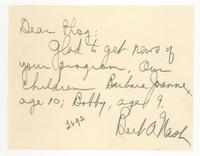 Dear Phog:
Glad to get news of
your program, Our
Children Barbara Joanne,
age 10; Bobby, age 9.
3692
Bert A. Nash